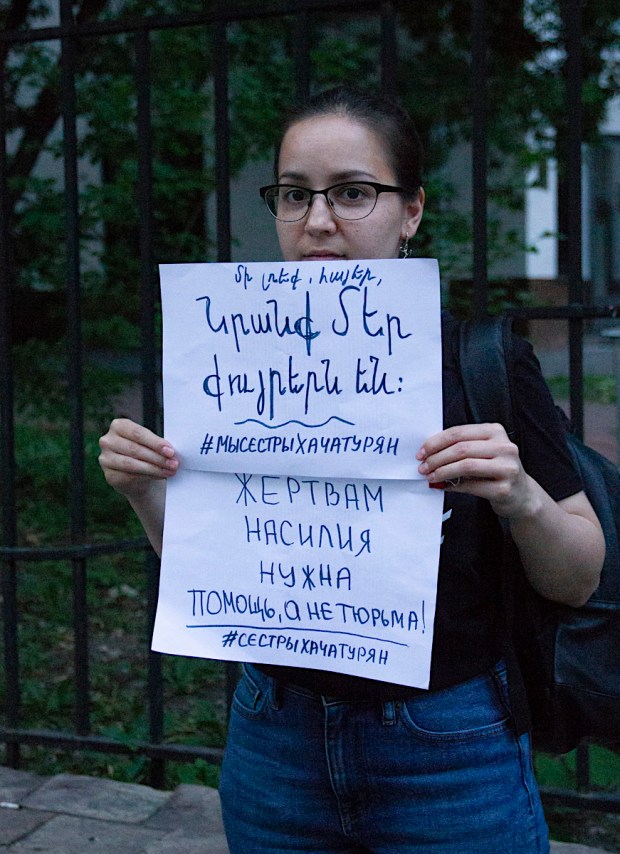 Մի լռեք, հայեր,
Նրանք Մեր
քույրերն են:
#МЫСЕСТРЫХАЧАТУРЯН
ЖЕРТВАМ
НАСИЛИЯ
НУЖНА
ПОМОЩЬ, А НЕ ТЮРЬМА!
#СЕСТРЫХАЧАТУРЯН